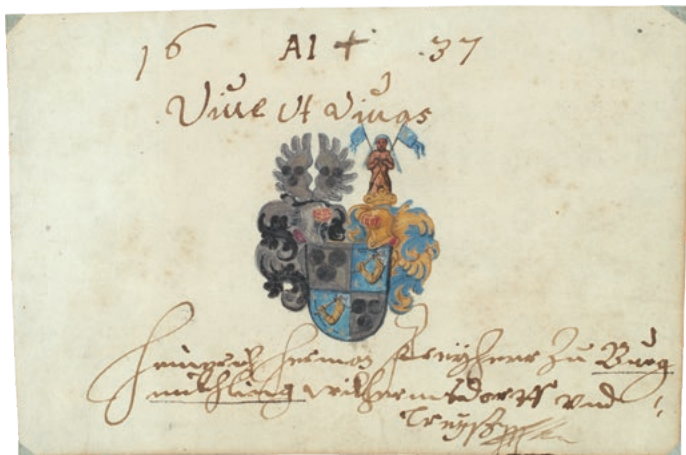 16 AI + 37
Viue Vt Viuas
Heinrich Herman Freyherr Zu Burg
milchling Wilhermsdorff vnd
Treyß